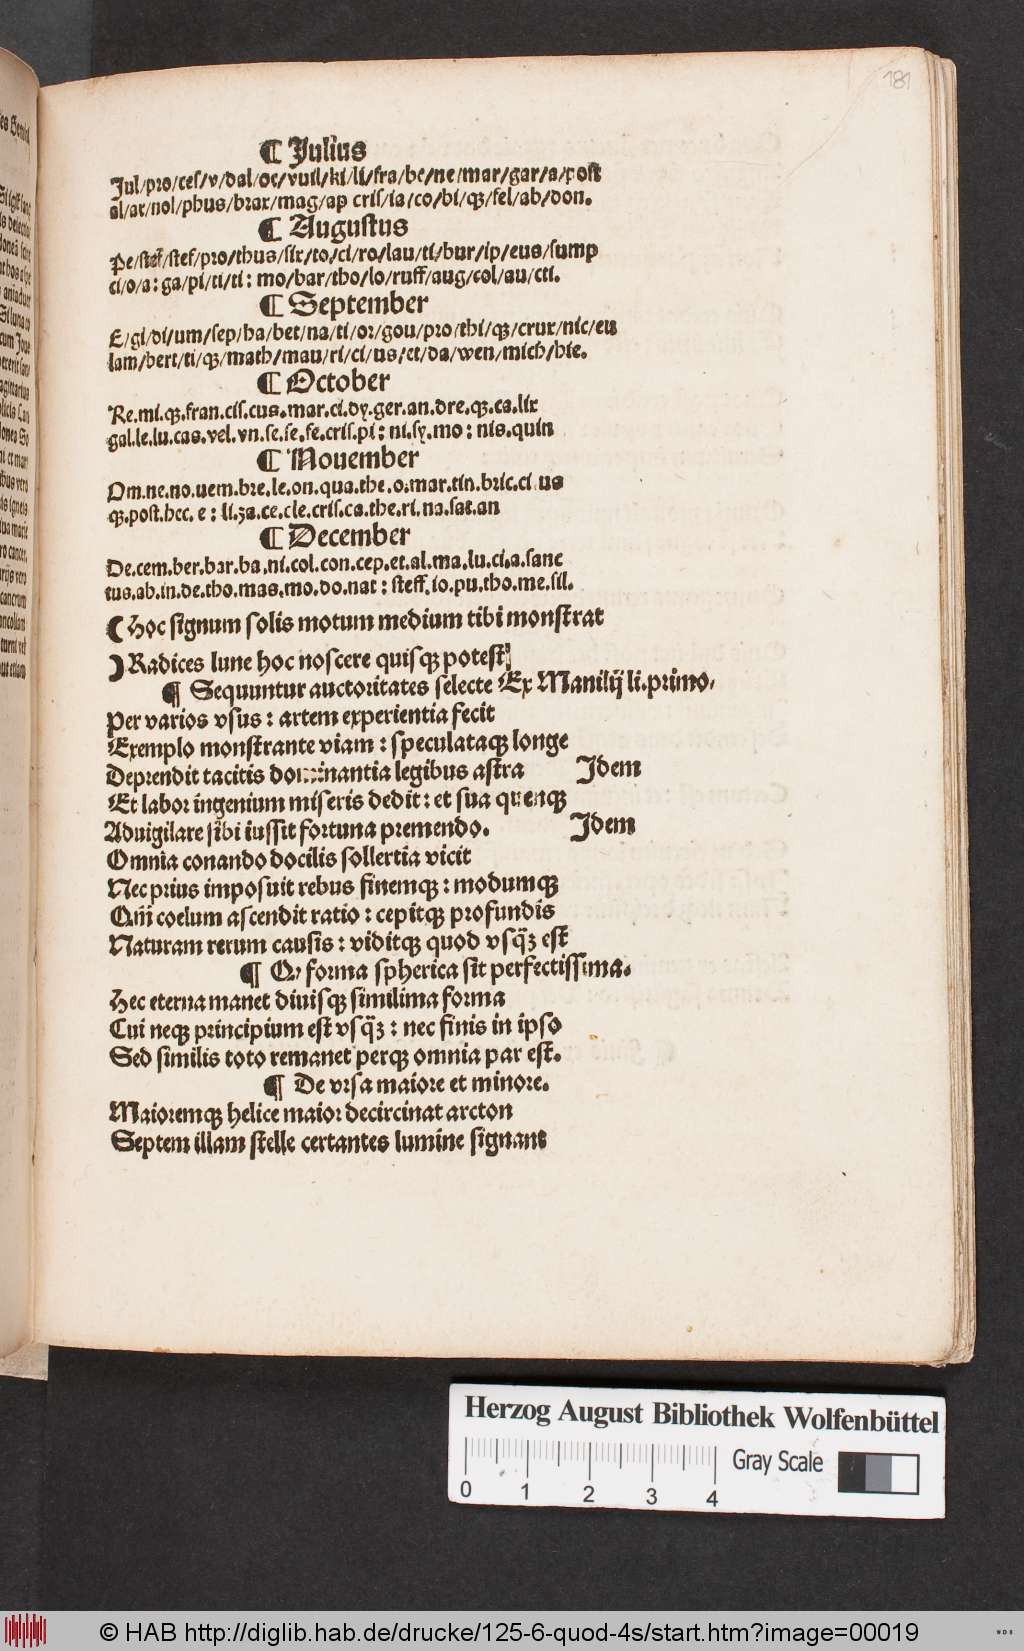 181
¶ Julius
Jul/pro/ces/v/dal/oc/vuil/ki/li/fra/be/ne/mar/gar/a/post
al/ar/nol/phus/brax/mag/ap cris/ia/co/bi/qꝫ/fel/ab/don.
¶ Augustus
Pe/steff/stef/pro/thus/six/to/ci/ro/lau/ti/bur/ip/eus/sump
ci/o/a: ga/pi/ti/ti: mo/bar/tho/lo/ruff/aug/col/au/cti.
¶ September
E/gi/di/um/sep/ha/bet/na/ti/or/gou/pro/thi/qꝫ/crux/nic/eu
lam/bert/ti/qꝫ/math/mau/ri/ci/us/et/da/wen/mich/hie.
¶ October
Re.mi.qꝫ.fran.cis.cus.mar.ci.dy.ger.an.dre.qꝫ.ca.lix
gal.le.lu.cas.vel.vn.se.se.fe.cris.pi: ni.sy.mo: nis.quin
¶ Nouember
Om.ne.no.uem.bre.le.on.qua.the.o:mar.tin.bric.ci us
qꝫ.post.hec. e: li.za.ce.cle.cris.ca.the.ri.na.sat.an
¶ December
De.cem.ber.bar.ba.ni.col.con.cep.et.al.ma.lu.ci.a.sanc
tus.ab.in.de.tho.mas.mo.do.nat: steff.io.pu.tho.me.sil.
☾ Hoc signum solis motum medium tibi monstrat
☽ Radices lune hoc noscere quisqꝫ potest
¶ Sequuntur auctoritates selecte Ex Manilij li.primo.
Per varios vsus: artem experientia fecit
Exemplo monstrante viam: speculataqꝫ longe
Deprendit tacitis dominantia legibus astra Idem
Et labor ingenium miseris dedit: et sua quenqꝫ
Aduigilare sibi iussit fortuna premendo. Idem
Omnia conando docilis sollertia vicit
Nec prius imposuit rebus finemqꝫ: modumqꝫ
Qm̄ coelum ascendit ratio: cepitqꝫ profundis
Naturam rerum causis: viditqꝫ quod vsq̄ꝫ est
¶ Qꝫ forma spherica sit perfectissima.
Hec eterna manet diuisqꝫ simillima forma
Cui neqꝫ principium est vsq̄ꝫ: nec finis in ipso
Sed similis toto remanet perqꝫ omnia par est.
¶ De vrsa maiore et minore.
Maioremqꝫ helice maior decircinat arcton
Septem illam stelle certantes lumine signant
Herzog August Bibliothek Wolfenbüttel
0 1 2 3 4
Gray Scale
© HAB http://diglib.hab.de/drucke/125-6-quod-4s/start.htm?image=00019